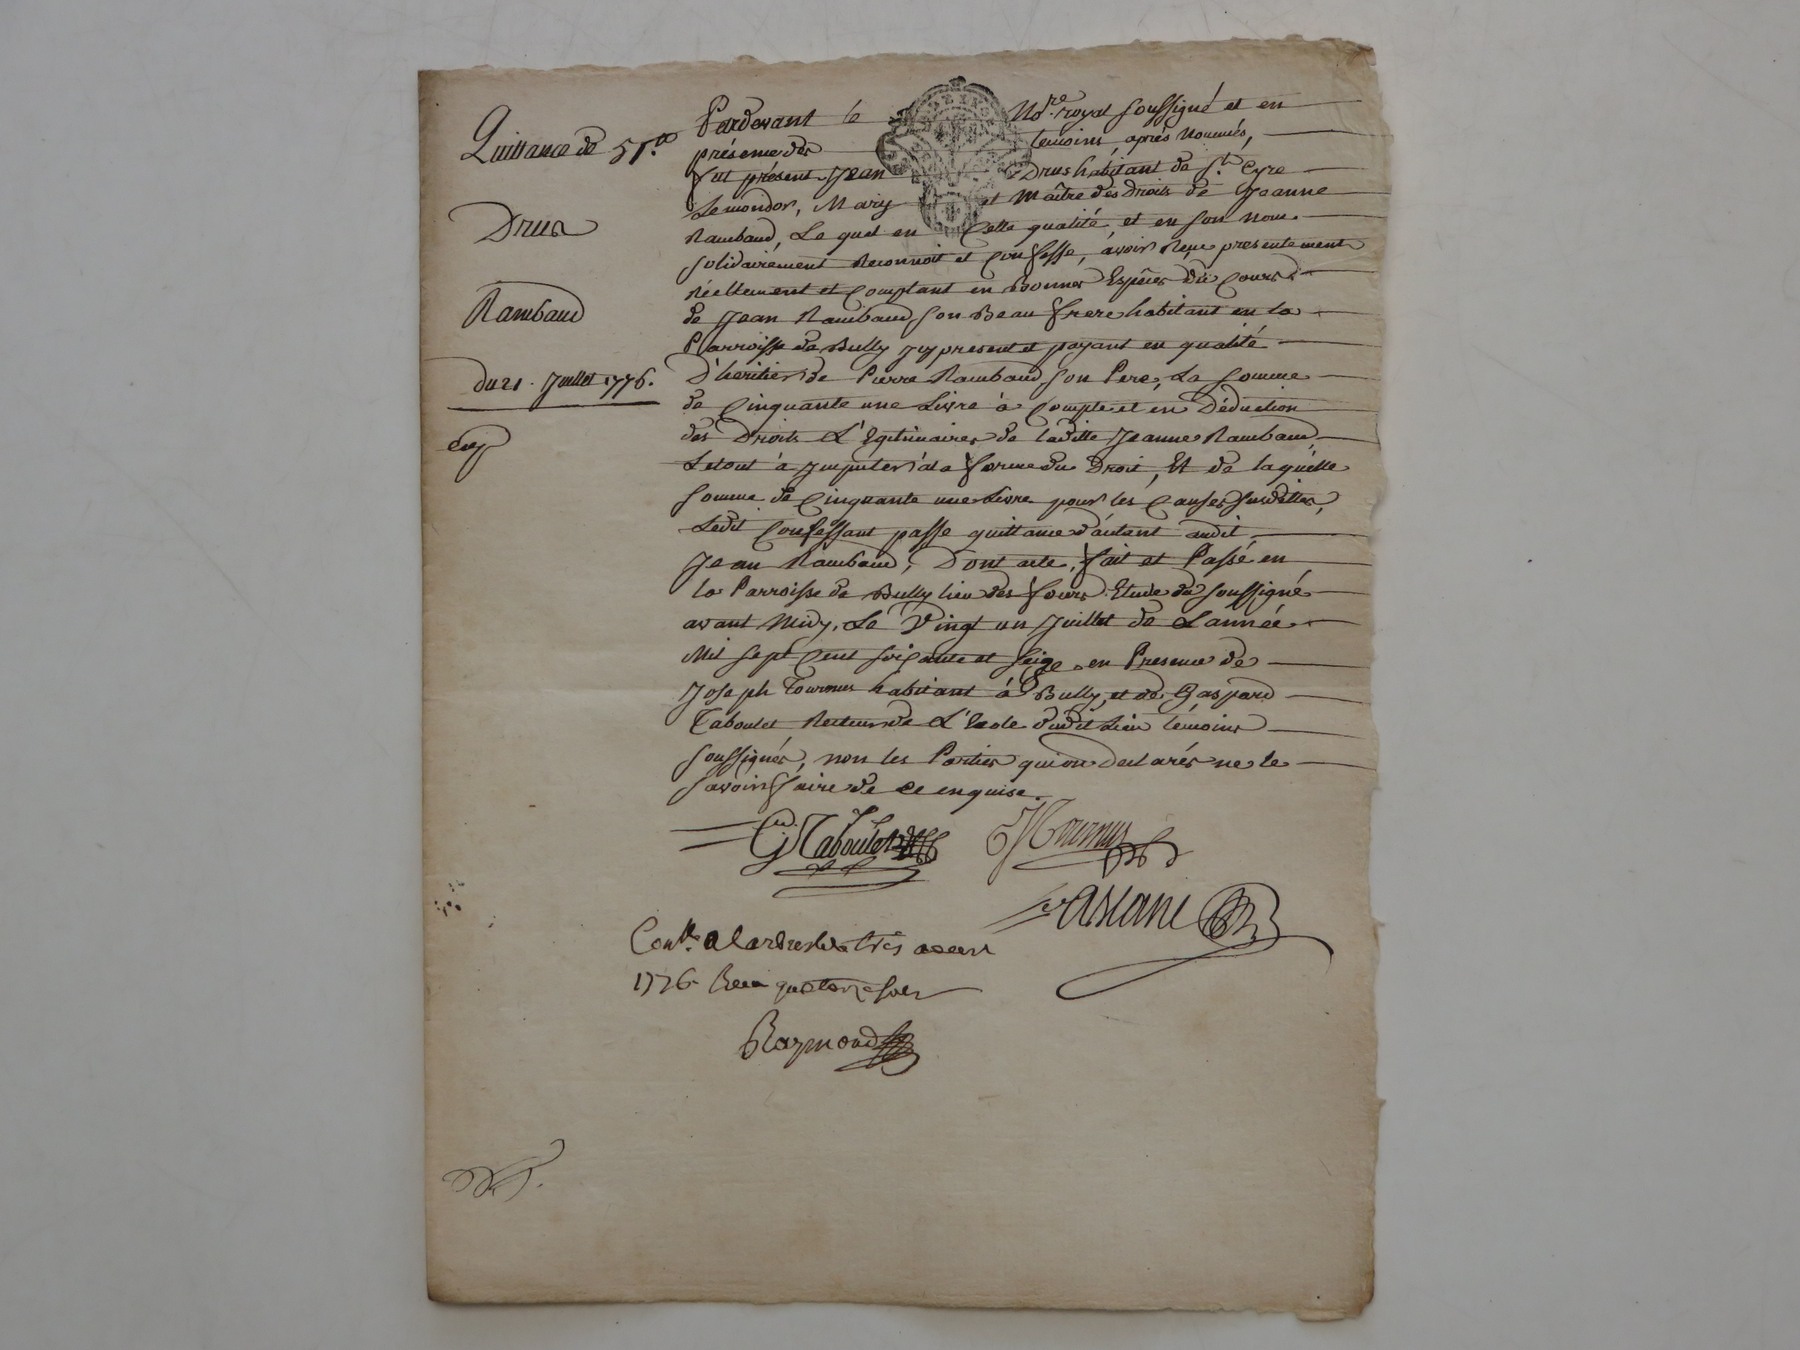 Quittance de 51.tt
Drus
Rambaud
du 21. Juillet 1776.
exp
Pardevant le No.re royal soussigné et en
présence des temoins, après nommés,
fut présent Jean Drus habitant de S.t Cyre
Lemondor, Mary et maître des Droits de Jeanne
Rambaud, Le quel en Cette qualité, et en son nom
solidairement Reconnoit et Confesse, avoir Reçu presentement
réellement et Comptant en Bonnes Espéces du Cours
de Jean Rambaud son Beau frere habitant en la
Parroisse de Bully Icy present et payant en qualité
D'heritier de Pierre Rambaud, son Pere, La somme
de Cinquante une Livre à Compte et en Déduction
des Droits L'Egitimaires de laditte Jeanne Rambaud,
Letout à Imputer à la forme du Droit, Et de laquelle
somme de Cinquante une Livre pour les Causes susdittes,
Ledit Confessant passe quittance d'autant audit
Jean Rambaud, Dont acte, fait et Passé en
la Parroisse de Bully lieu des fours Etude du soussigné
avant Midy, Le Vingt un Juillet de L'année
Mil sept Cent soixante et seize, en Presence de
Joseph Tournus habitant à Bully, et de Gaspard
Taboulet Recteur de L'Ecole dudit Lieu temoins
soussignés, non les Parties qui ont declarés ne le
savoir faire de ce enquise.
G Taboulet
J Tournus
Contl.é a Larbresle le trois aoust
1776. Reçu quatorze sols
Raymond